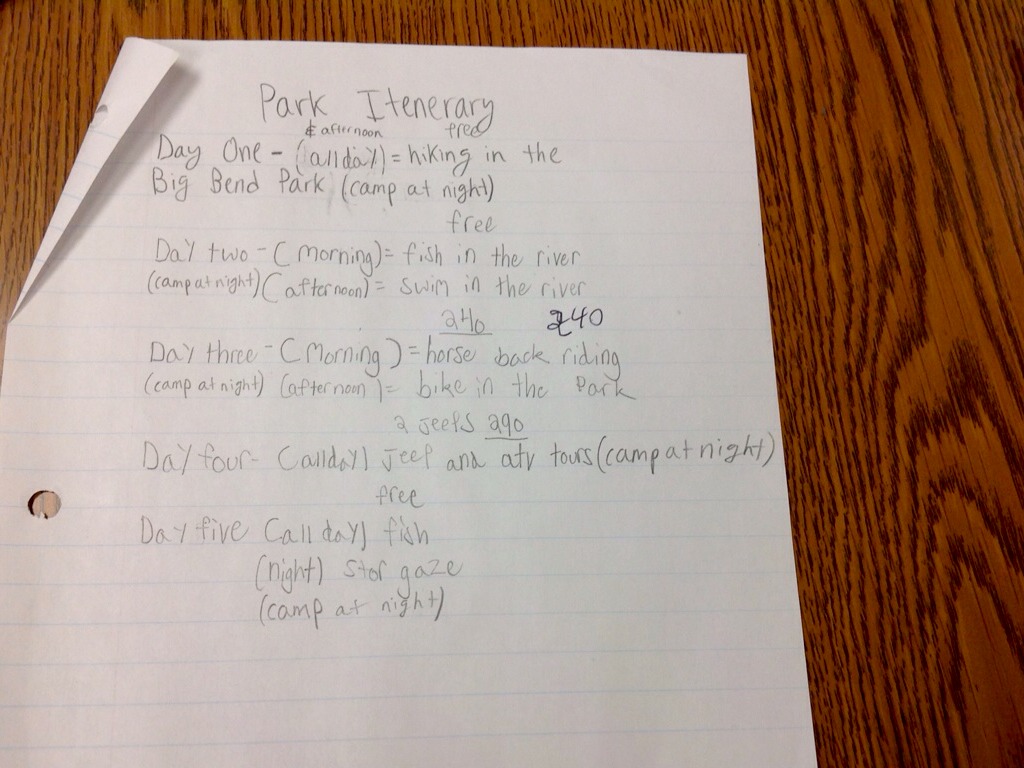 Park Itenerary
& afternoon free
Day One - (all day) = hiking in the
Big Bend Park (camp at night)
free
Day two - (morning) = fish in the river
(camp at night) (afternoon) = swim in the river
240 240
Day three - (Morning) = horse back riding
(camp at night) (afternoon) = bike in the Park
2 Jeeps 290
Day four - (all day) Jeep and atv tours (camp at night)
free
Day five (all day) fish
(night) Star gaze
(camp at night)